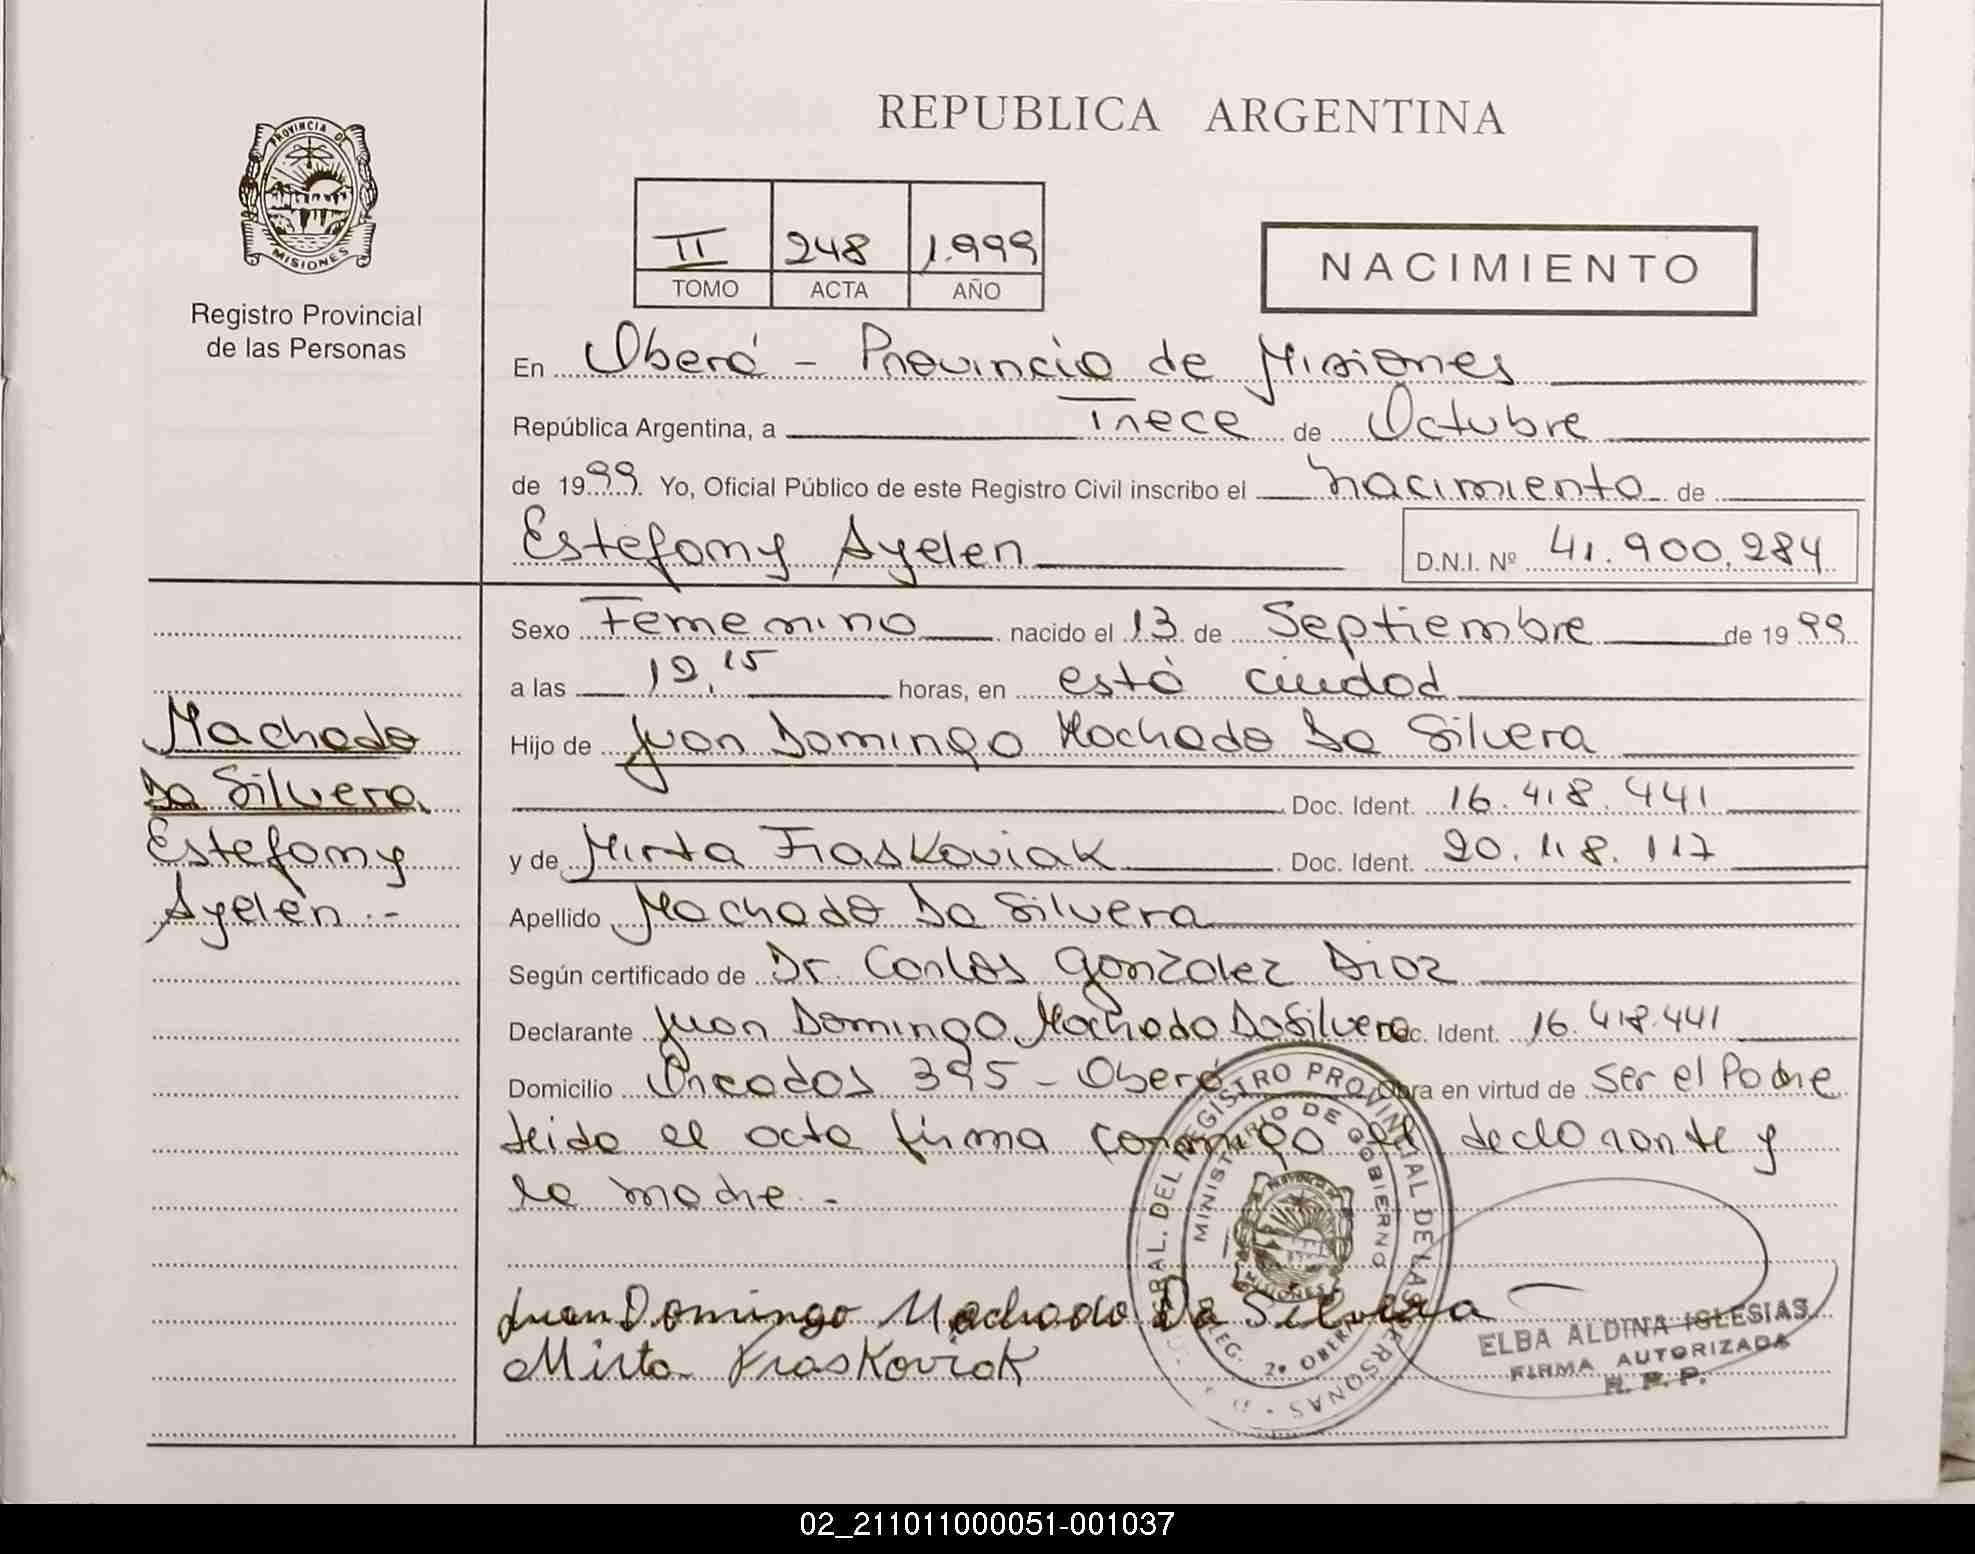 REPUBLICA ARGENTINA
PROVINCIA DE
MISIONES
Registro Provincial
de las Personas
II 248 1.999
TOMO ACTA AÑO
NACIMIENTO
En Oberá - Provincia de Misiones
República Argentina, a Trece de Octubre
de 1999 Yo, Oficial Público de este Registro Civil inscribo el nacimiento de
Estefany Ayelen D.N.I. Nº 41.900.284
Sexo Femenino nacido el 13 de Septiembre de 1999
a las 12,15 horas, en está ciudad
Hijo de Juan Domingo Machado Da Silvera
Doc. Ident. 16.418.441
y de Mirta Fraskoviak Doc. Ident. 20.118.117
Apellido Machado Da Silvera
Según certificado de Dr. Carlos Gonzalez Diaz
Declarante Juan Domingo Machado Da Silvera Doc. Ident. 16.418.441
Domicilio 395 - Oberá Obra en virtud de Ser el Padre
leido el acta firma conmigo el declarante y
la madre.-
Machado
Da Silvera
Estefany
Ayelen.-
Juan Domingo Machado Da Silvera
Mirta Fraskoviak
REGISTRO PROVINCIAL DE LAS PERSONAS
MINISTERIO DE GOBIERNO
MISIONES
DELEG. 2º OBERA
ELBA ALDINA IGLESIAS
FIRMA AUTORIZADA
R. P. P.
02_211011000051-001037